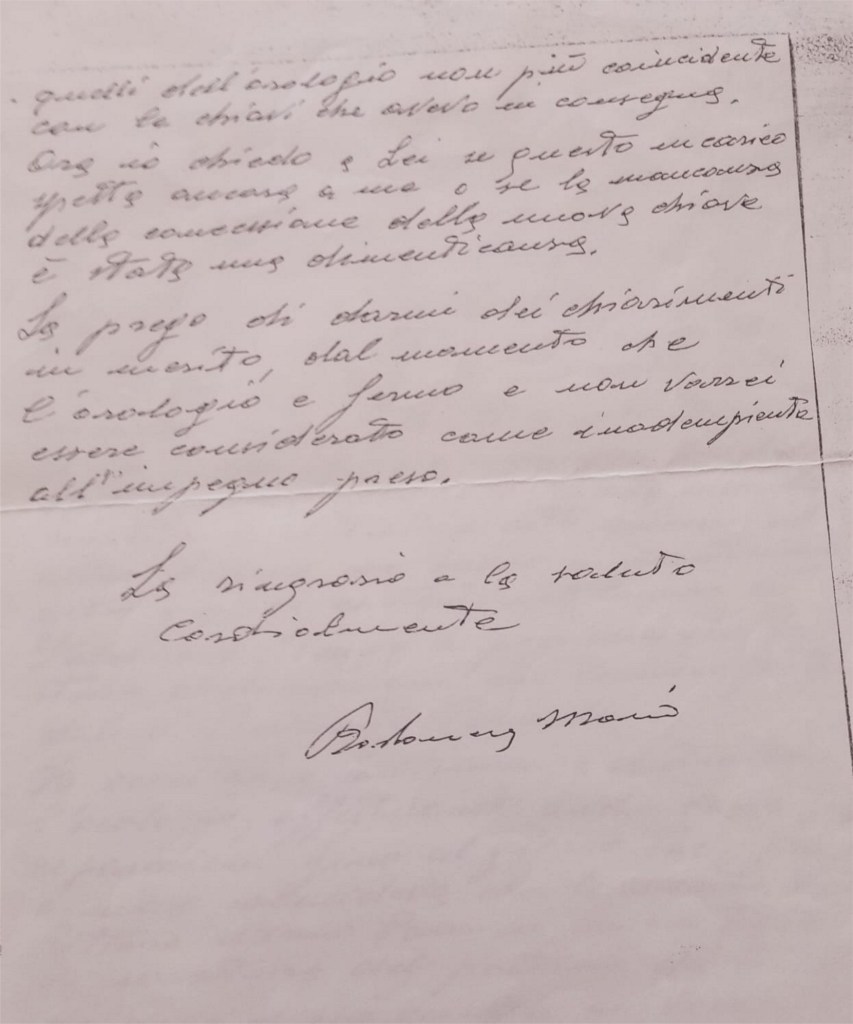 quelli dell'orologio non più coincidente
con le chiavi che avevo in consegna.
Ora io chiedo a Lei se questo incarico
spetta ancora a me o se la mancanza
della concessione della nuova chiave
è stata una dimenticanza.
La prego di darmi dei chiarimenti
in merito, dal momento che
l'orologio è fermo e non vorrei
essere considerato come inadempiente
all'impegno preso.
La ringrazio e la saluto
Cordialmente